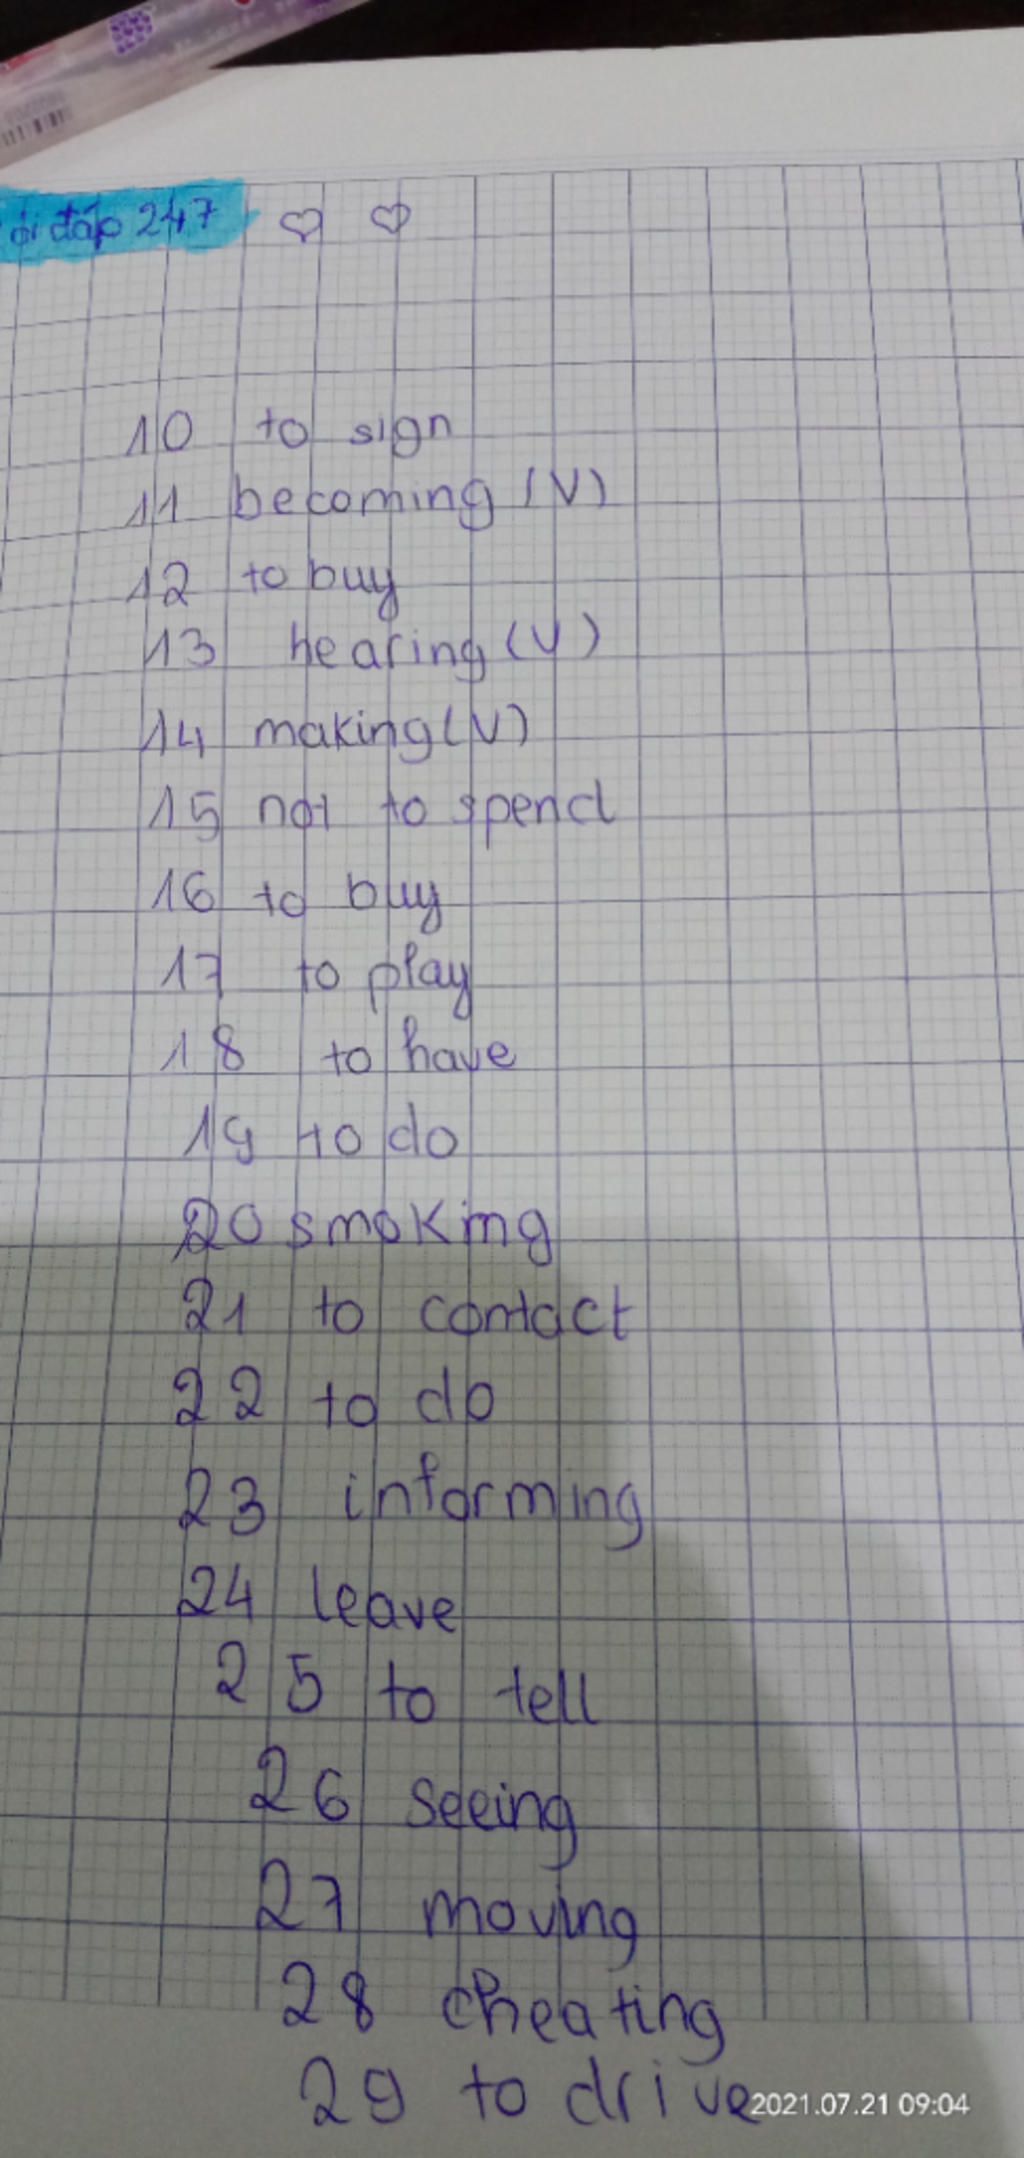 đáp 247 ♡ ♡
10 to sign
11 becoming (V)
12 to buy
13 hearing (V)
14 making (V)
15 not to spend
16 to buy
17 to play
18 to have
19 to do
20 smoking
21 to contact
22 to do
23 informing
24 leave
25 to tell
26 seeing
27 moving
28 cheating
29 to drive
2021.07.21 09:04